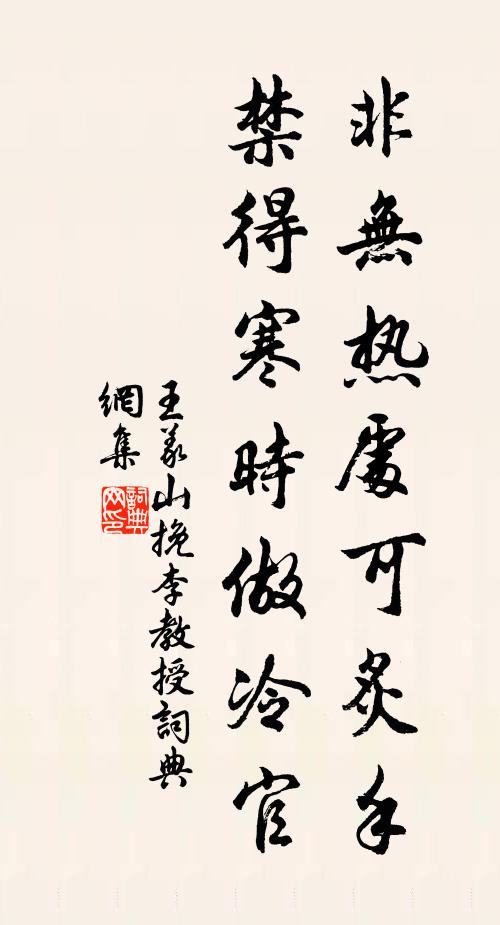 非無热處可炙手
禁得寒時做冷官
王義山挽李教授詞典
網集
詞典
网印